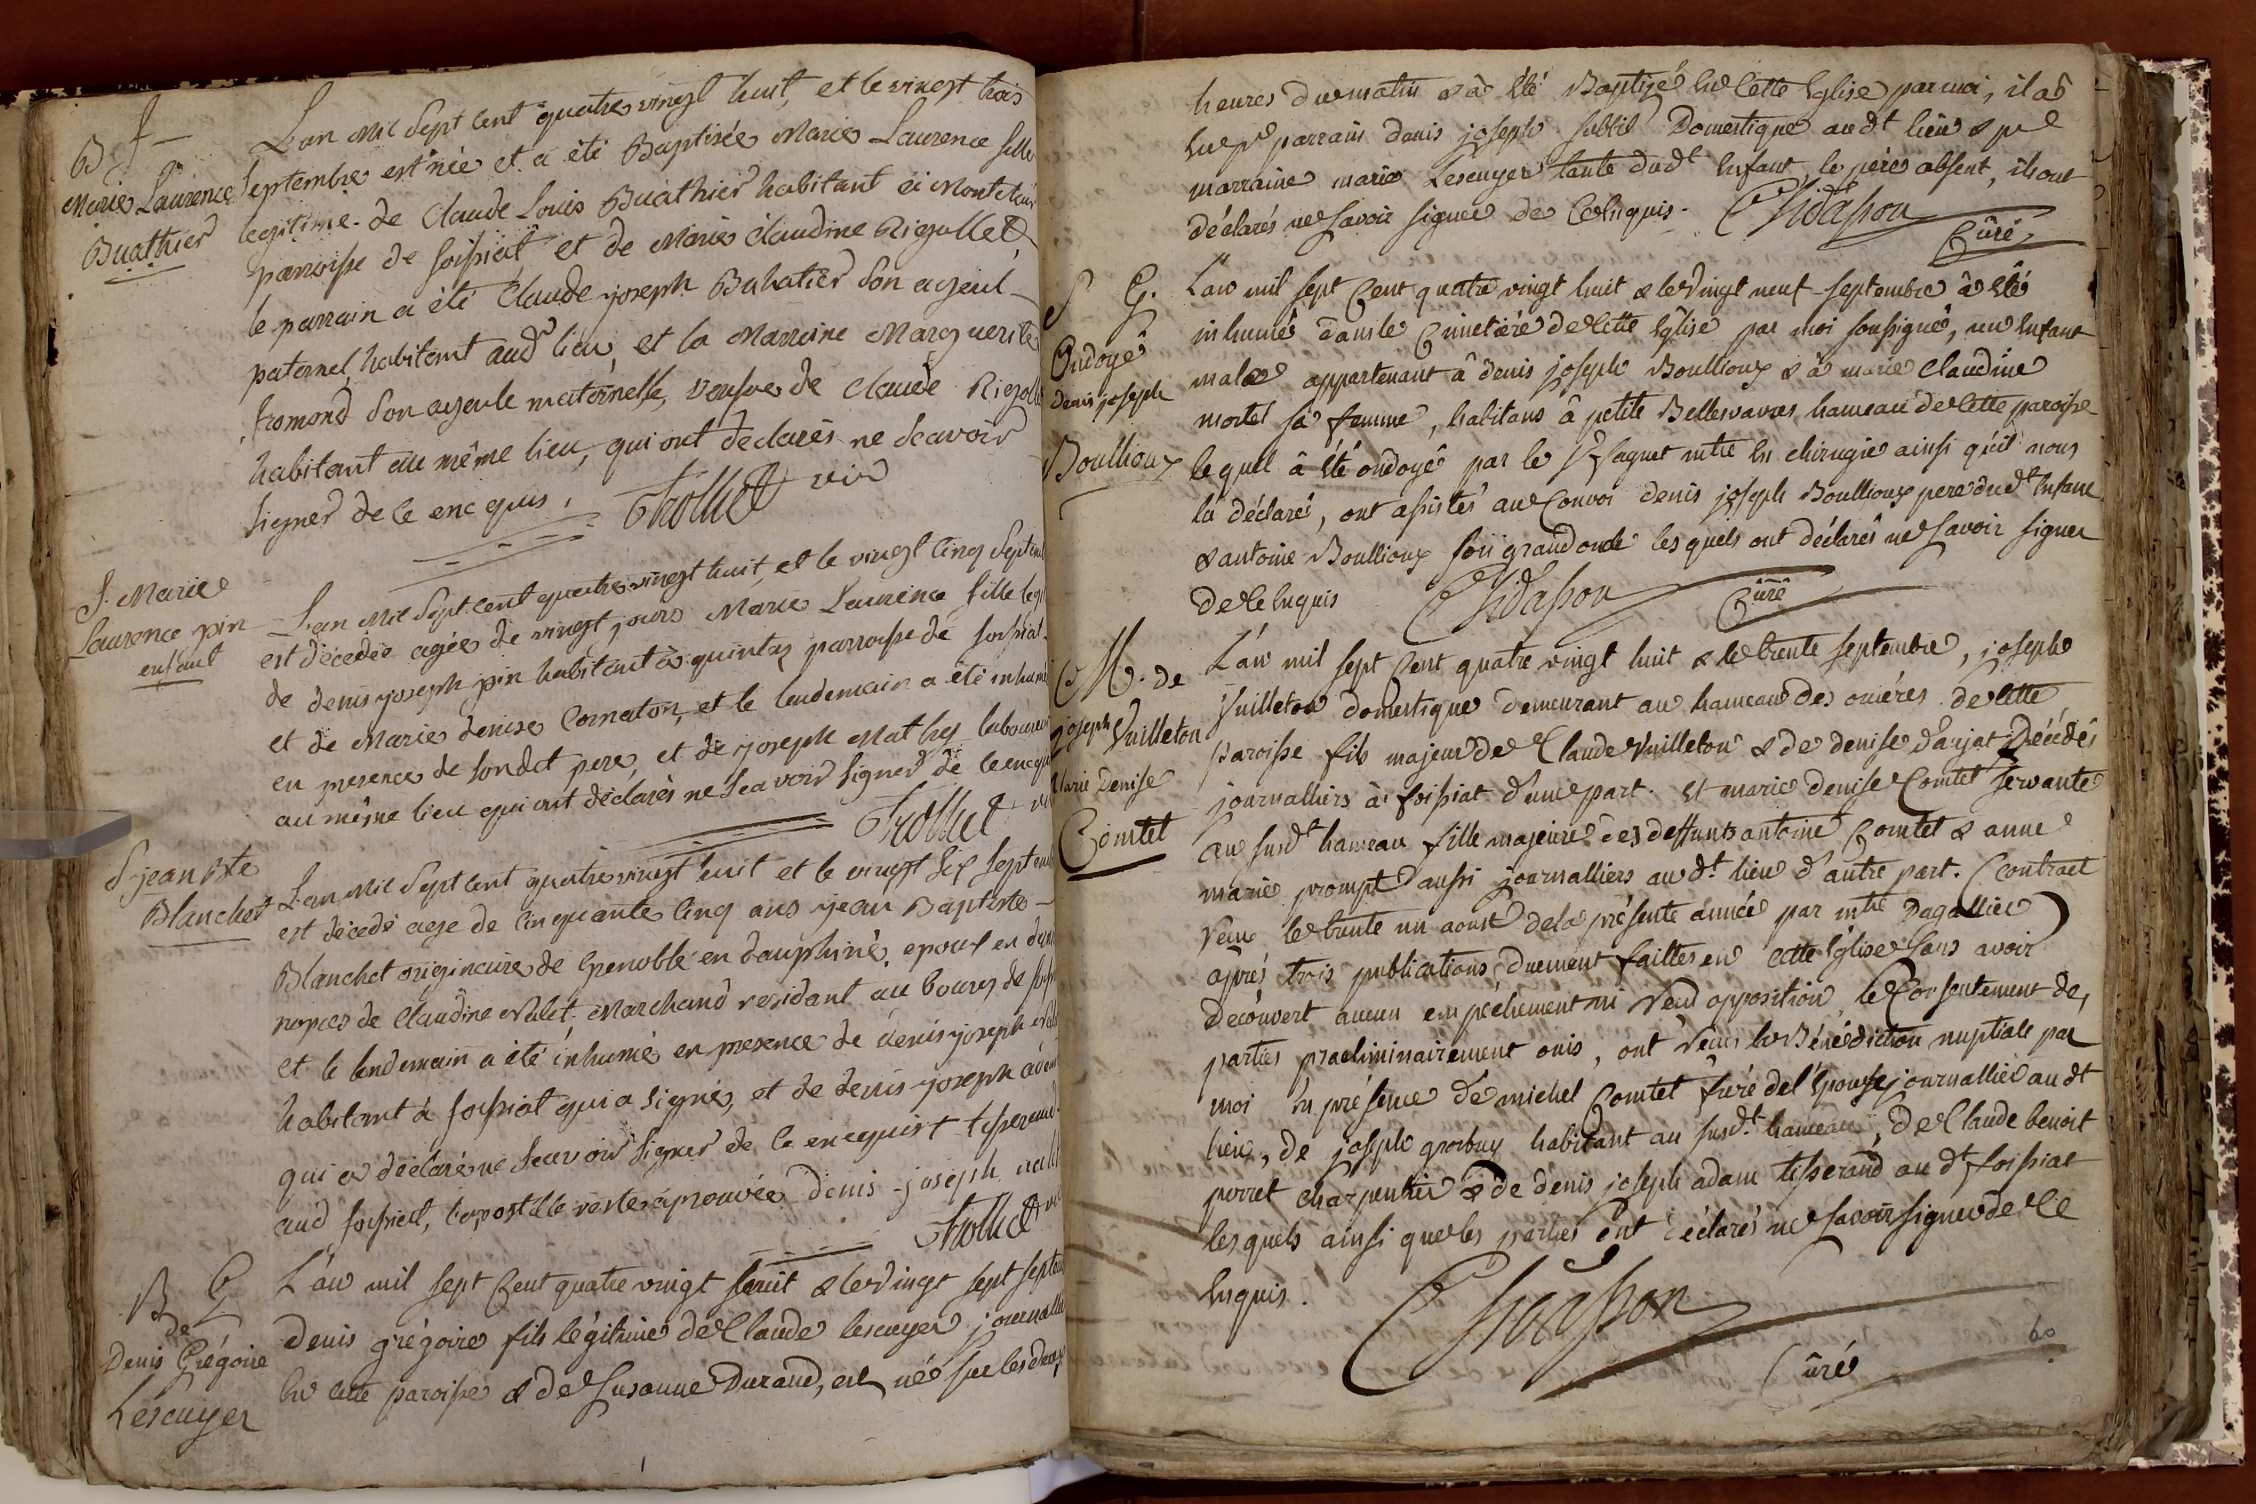 B. f
Marie Laurence
Buathier
L'an mil sept cent quatre vingt huit, et le vingt trois
Septembre est née et a été Baptisée Marie Laurence fille
legitime de Claude Louis Buathier habitant à
parroisse de foissiat et de Marie Claudine Rigollet,
le parrain a été Claude joseph Buhatier son ayeul
paternel habitant aud lieu, et la Marraine Marguerite
fromond son ayeule maternelle, veufve de Claude
habitant au même lieu, qui ont declarés ne scavoir
signer de ce enequis. Frollet vic
S. Marie
Laurence pin
enfant
L'an mil sept cent quatre vingt huit, et le vingt cinq
est décedée agée de vingt jours Marie Laurence fille
de denis joseph pin habitant à quintas parroisse de foissiat
et de Marie denise Cornaton, et le lendemain a été
en presence de sondet pere, et de joseph Mathy
au même lieu qui ont déclarés ne scavoir signer de ce
Frollet
S jean Bte
Blanchet
L'an mil sept cent quatre vingt huit et le vingt six
est décedé age de cinquante cinq ans jean Baptiste
Blanchet originaire de Grenoble en dauphiné, epoux en
nopces de Claudine Marchand residant au bourg de
et le lendemain a été inhumé en presence de denis joseph
habitant à foissiat qui a signé, et de denis joseph
qui a declaré ne scavoir signer de ce enequis +
aud foissiat, l'apostille reste aprouvée denis joseph
Frollet
B G
de
Denis Grégoire
Lescuyer
L'an mil sept Cent quatre vingt huit & le vingt sept
denis grégoire fils légitime de Claude lescuyer
en cette paroisse & de Susanne Durand, est né sur les
heures du matin & a été Baptizé en Cette Eglise par moi, il a
eu pr parrain denis joseph Domestique audt lieu & pr
marraine marie Lescuyer tante dudt Enfant, le père absent, ils ont
déclarés ne savoir signer de Ce Enquis. Chidasson
Curé
S G.
Ondoyé
denis joseph
Boullioux
L'an mil sept Cent quatre vingt huit & le vingt neuf septembre â été
inhumé dans le Cimetière de Cette Eglise par moi soussigné, un Enfant
male appartenant â denis joseph Boullioux & â marie Claudine
mortel sa femme, habitans â petite hameau de Cette paroisse
lequel â été ondoyé par le Sr mtre En chirugie ainsi qu'il nous
la déclaré, ont assistés au Convoi denis joseph Boullioux pere dudt Enfant
& antoine Boullioux son grand oncle lesquels ont déclarés ne savoir signer
de Ce Enquis Chidasson Curé
M. de
joseph Vuilleton
Marie Denise
Comtet
L'an mil sept Cent quatre vingt huit & le trente septembre, joseph
Vuilleton domestique demeurant au hameau des de Cette
paroisse fils majeur de Claude Vuilleton & de denise Décédés
journalliers â foissiat d'une part. Et marie denise Comtet servante
au susdt hameau fille majeure des deffunts antoine Comtet & anne
marie prompt aussi journalliers audt lieu d'autre part. (Contract
reçu le trente un aoust de la présente année par mtre Dagallier)
après trois publications duement faittes en Cette Eglise sans avoir
découvert aucun empêchement ni reçu opposition, le Consentement des
parties praeliminairement ouis, ont reçus la Bénédiction nuptiale par
moi En présence de michel Comtet frère de l'Epouse, journallier audt
lieu, de joseph habitant au susdt hameau, de Claude benoit
perret charpentier & de denis joseph adam tisserand audt foissiat
lesquels ainsi que les parties ont déclarés ne savoir signer de Ce
Enquis.
Chidasson
Curé
60